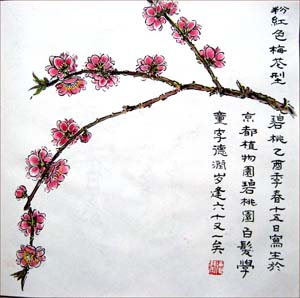 粉紅色梅花型
碧桃乙酉季春十五日寫生於
京都植物園碧桃園白髮學
童李德潤岁逢六十又一矣